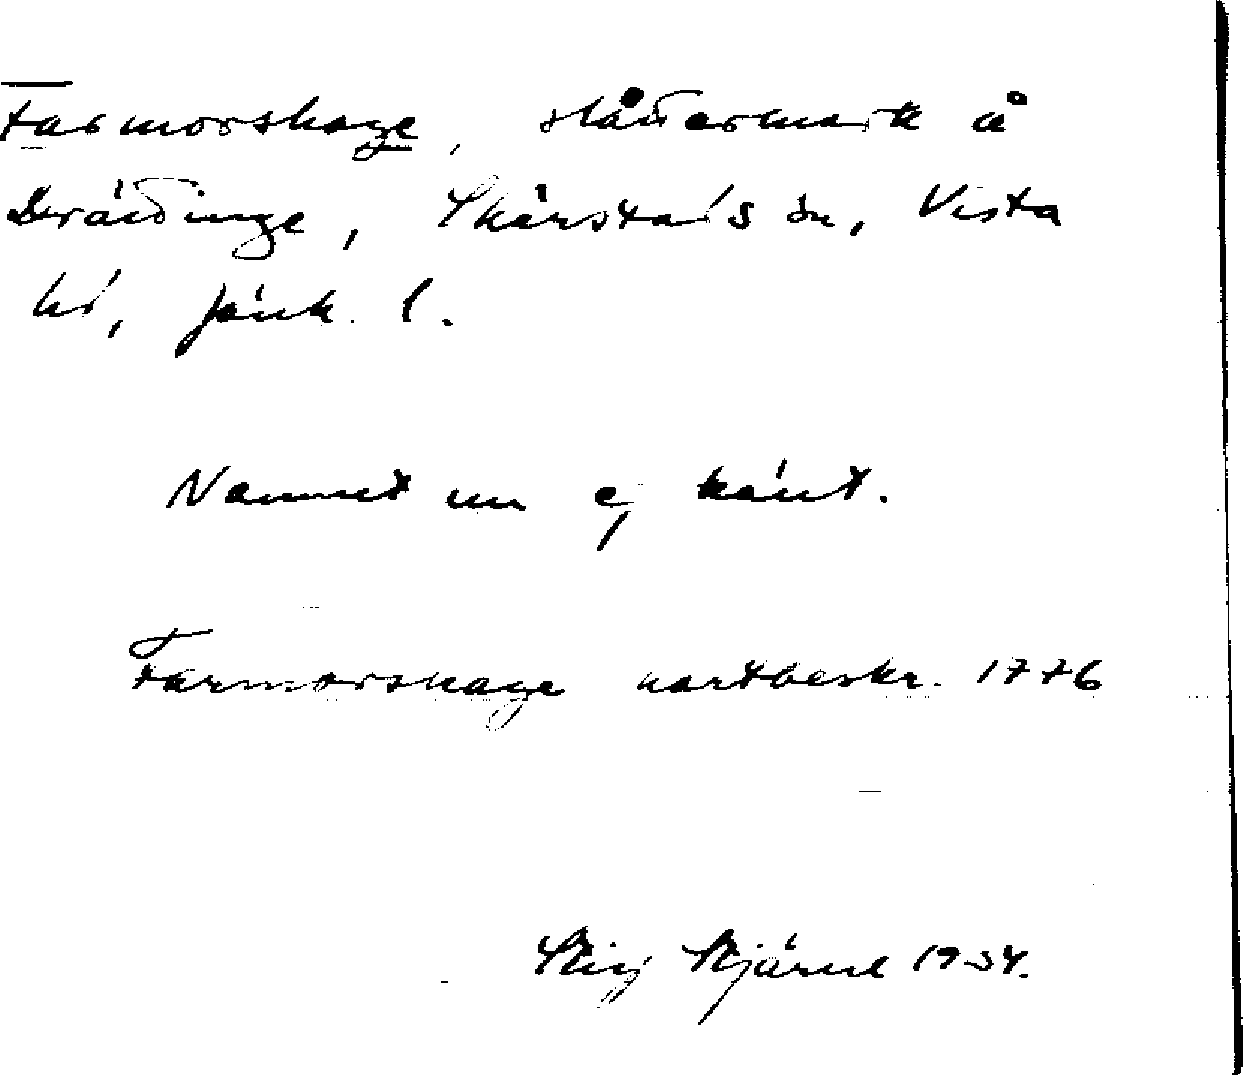 Farmorshage, slåttermark å
Drättinge, Skärstads sn, Vista
hd, Jönk. l.
Namnet nu ej känt.
Farmorshage kartbeskr. 1776
Stig Stjärne 1934.